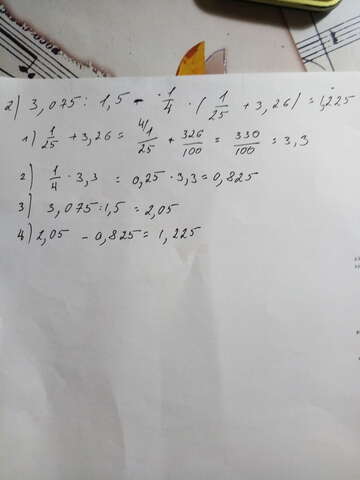 2) 3,075 : 1,5 - 1/4 · (1/25 + 3,26) = 1,225
1) 1/25 + 3,26 = 4/ 1/25 + 326/100 = 330/100 = 3,3
2) 1/4 · 3,3 = 0,25 · 3,3 = 0,825
3) 3,075 : 1,5 = 2,05
4) 2,05 - 0,825 = 1,225